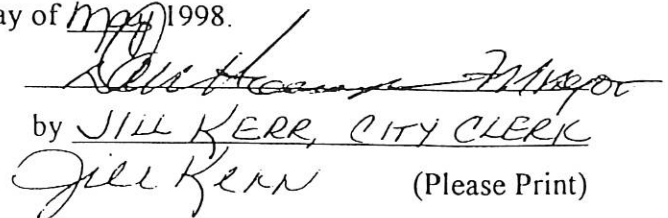 ay of May 1998.
Mayor
by JILL KERR, CITY CLERK
Jill Kerr (Please Print)